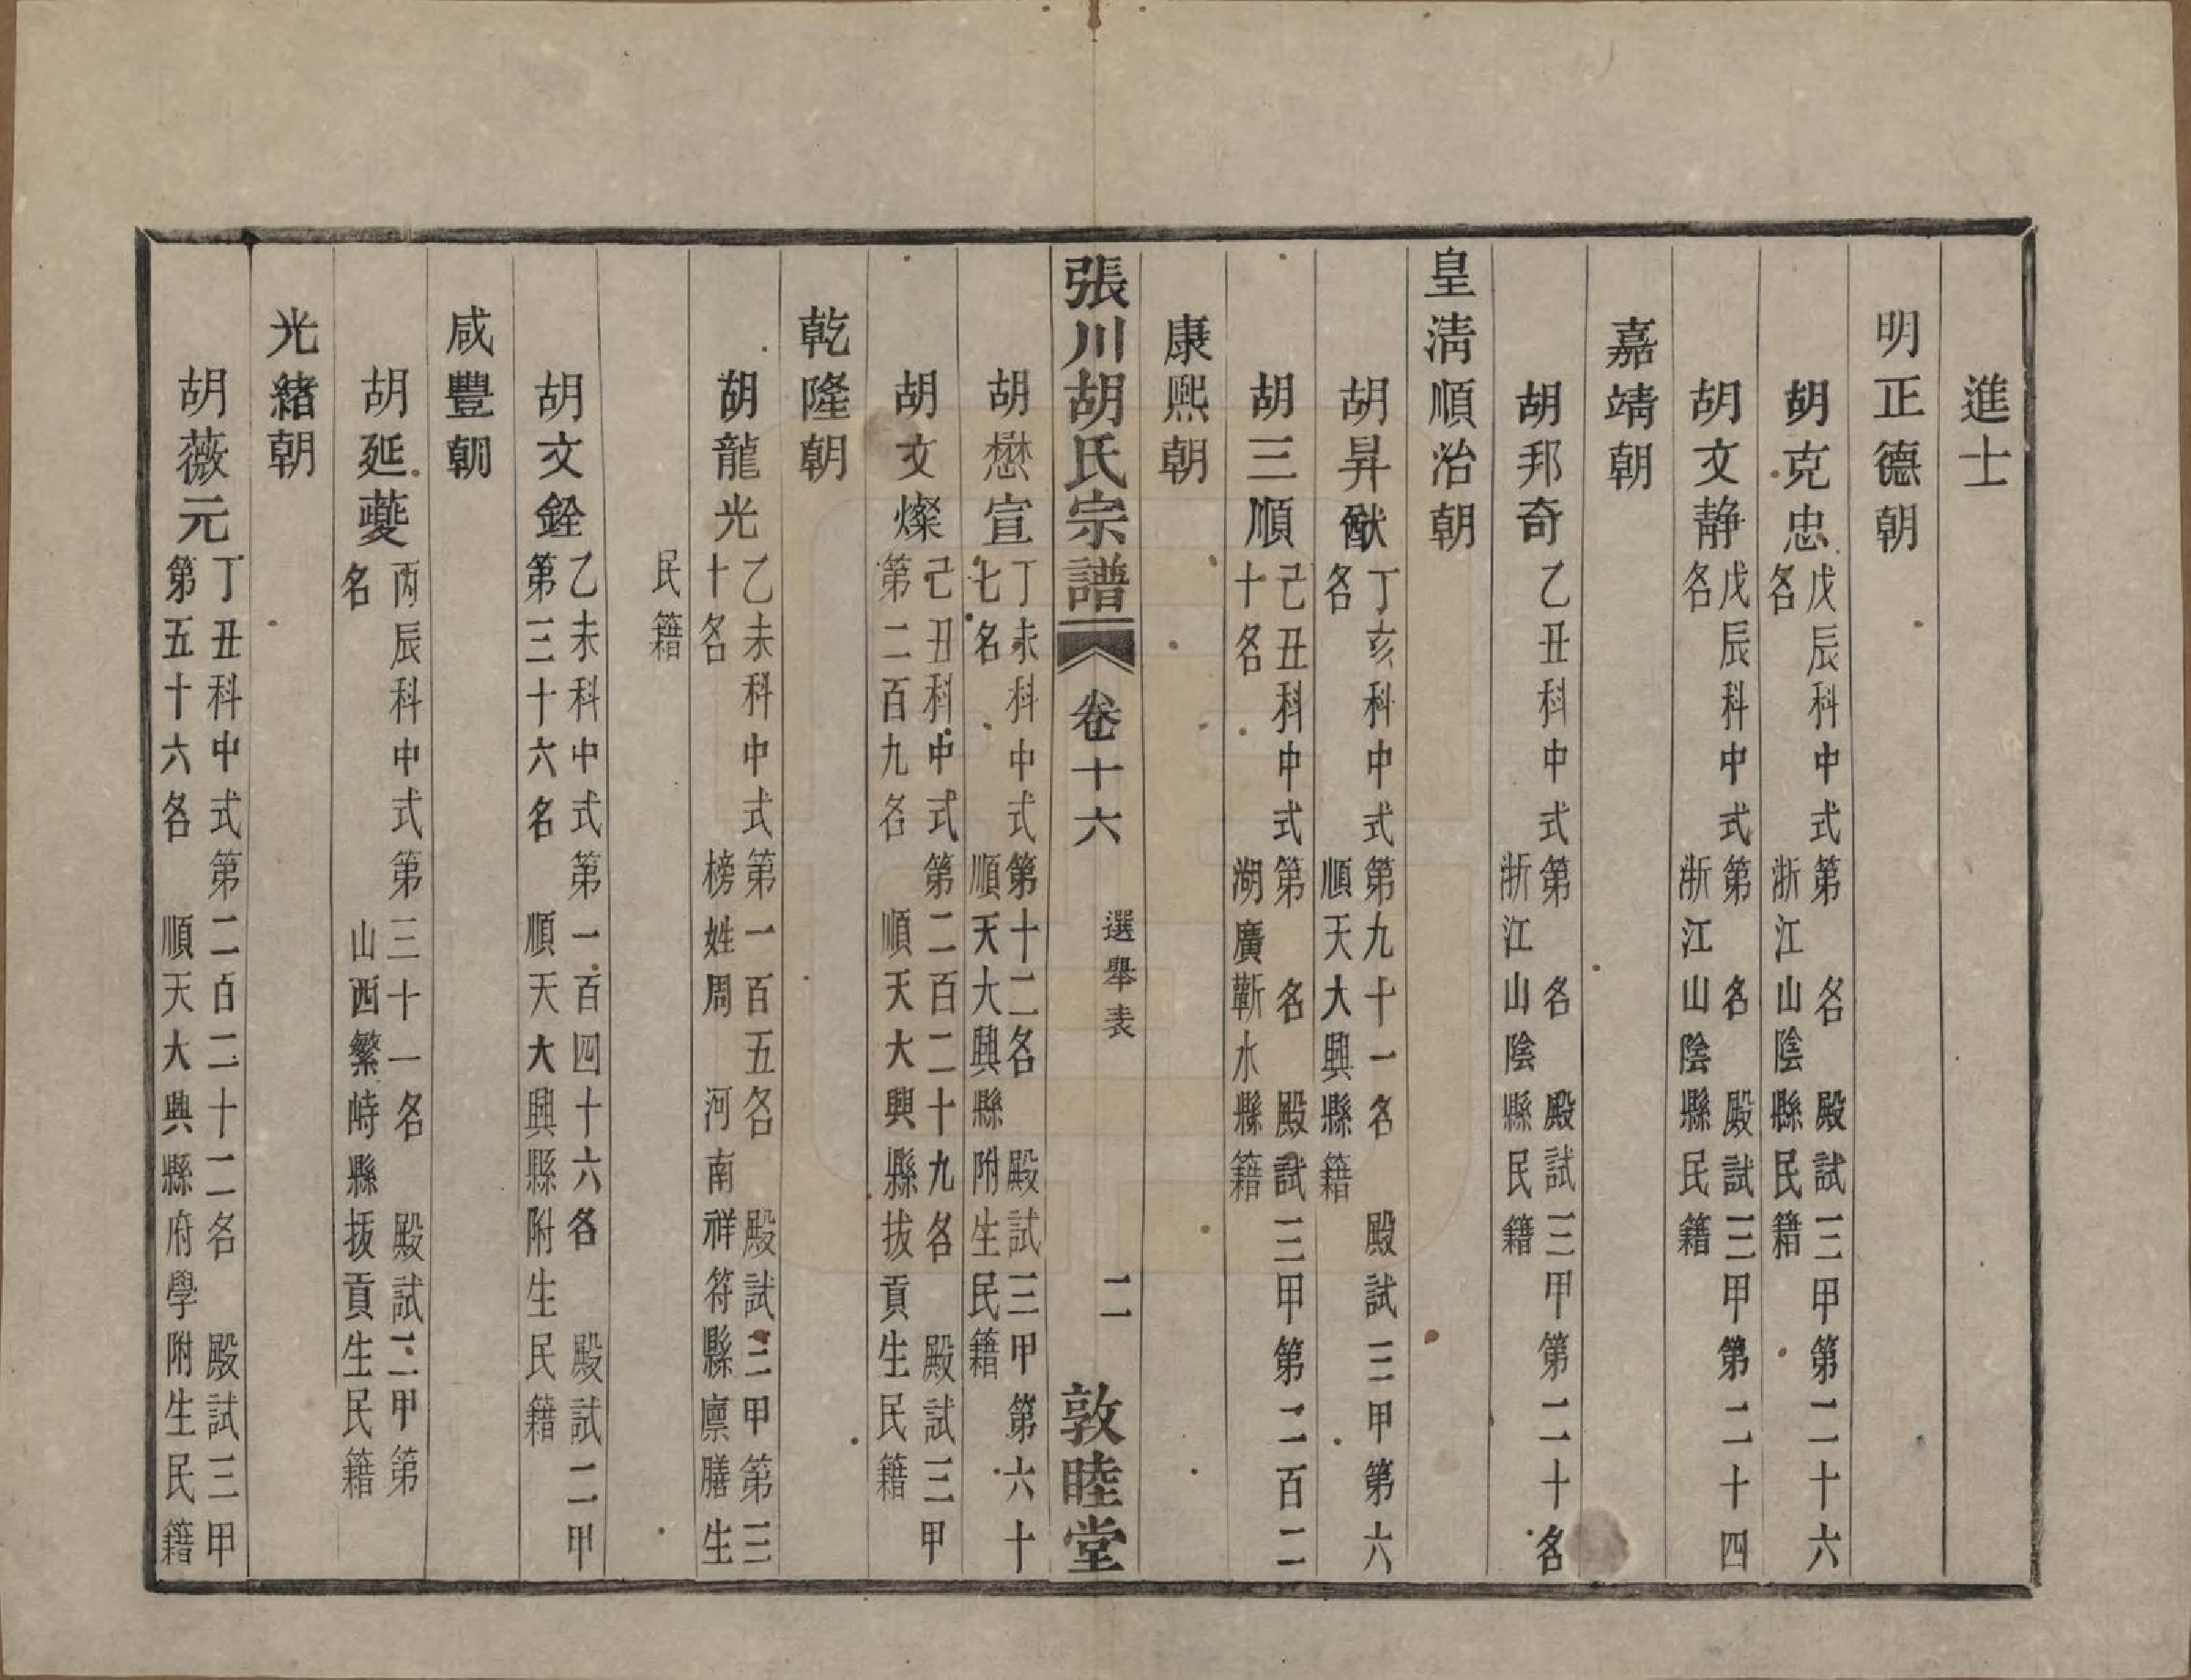 進士
明正德朝
胡克忠 戊辰科中式第 名 殿試三甲第二十六
名 浙江山陰縣民籍
胡文静 戊辰科中式第 名 殿試三甲第二十四
名 浙江山陰縣民籍
嘉靖朝
胡邦奇 乙丑科中式第 名 殿試三甲第二十名
浙江山陰縣民籍
皇清順治朝
胡昇猷 丁亥科中式第九十一名 殿試三甲第六
名 順天大興縣籍
胡三順 己丑科中式第 名 殿試三甲第二百二
十名 湖廣蘄水縣籍
康熙朝
張川胡氏宗譜 卷十六 選舉表 二 敦睦堂
胡懋宣 丁未科中式第十二名 殿試三甲第六十
七名 順天大興縣附生民籍
胡文燦 己丑科中式第二百二十九名 殿試三甲
第二百九名 順天大興縣拔貢生民籍
乾隆朝
胡龍光 乙未科中式第一百五名 殿試三甲第三
十名 榜姓周 河南祥符縣廩膳生
民籍
胡文銓 乙未科中式第一百四十六名 殿試二甲
第三十六名 順天大興縣附生民籍
咸豐朝
胡延夔 丙辰科中式第三十一名 殿試二甲第
名 山西繁峙縣拔貢生民籍
光緒朝
胡薇元 丁丑科中式第二百二十二名 殿試三甲
第五十六名 順天大興縣府學附生民籍